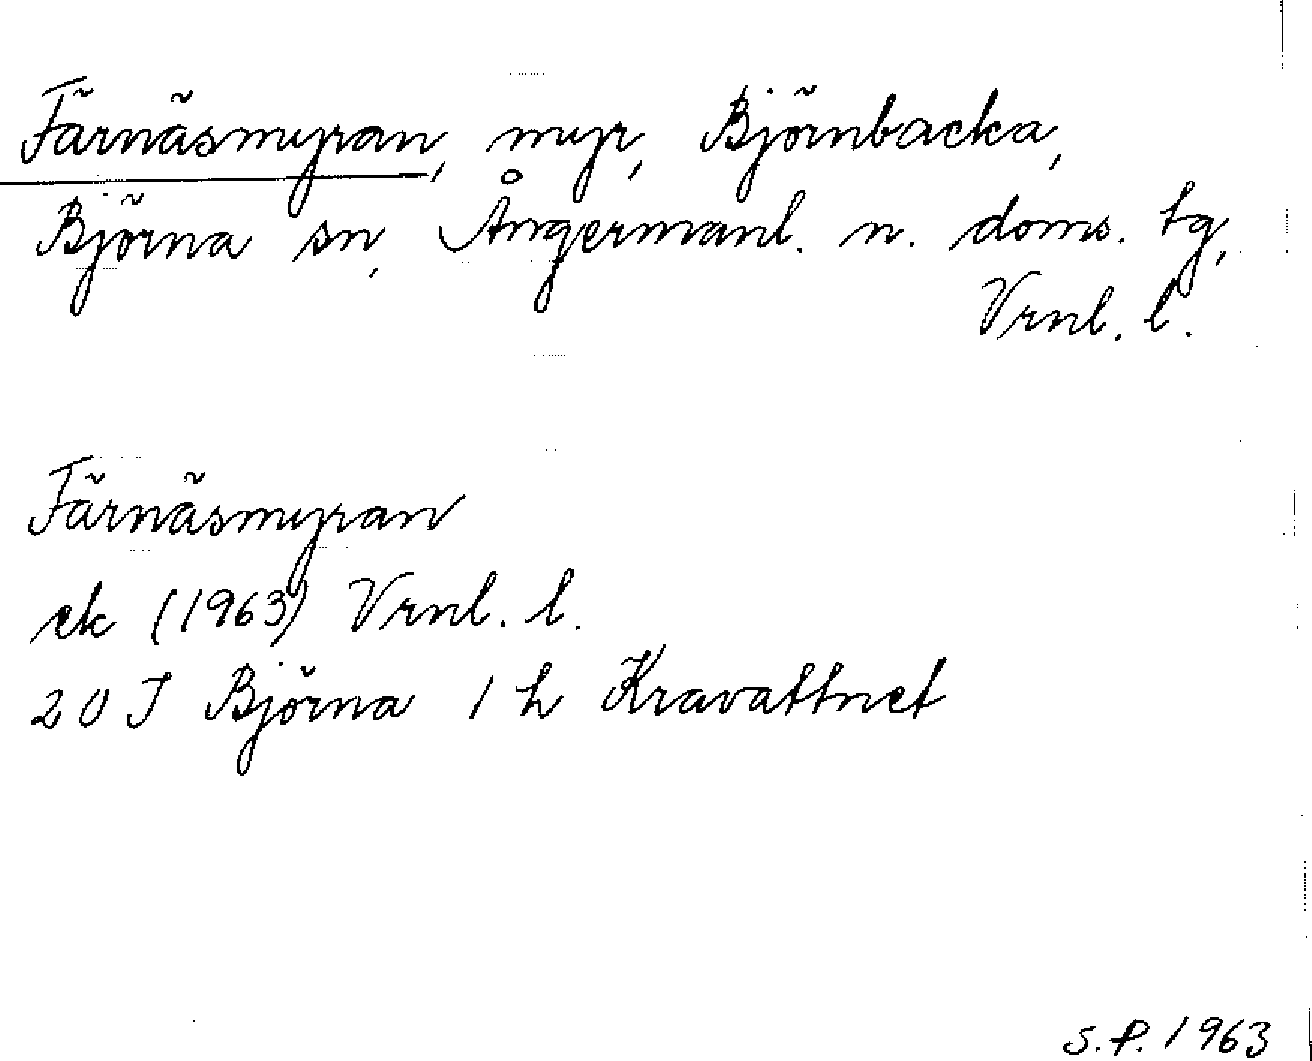 Färnäsmyran, myr, Björnbacka,
Björna sn, Ångermanl. n. doms. tg,
Vrnl. l.
Färnäsmyran
ek (1963) Vrnl. l.
20 J Björna 1 h Kravattnet
S.P. 1963